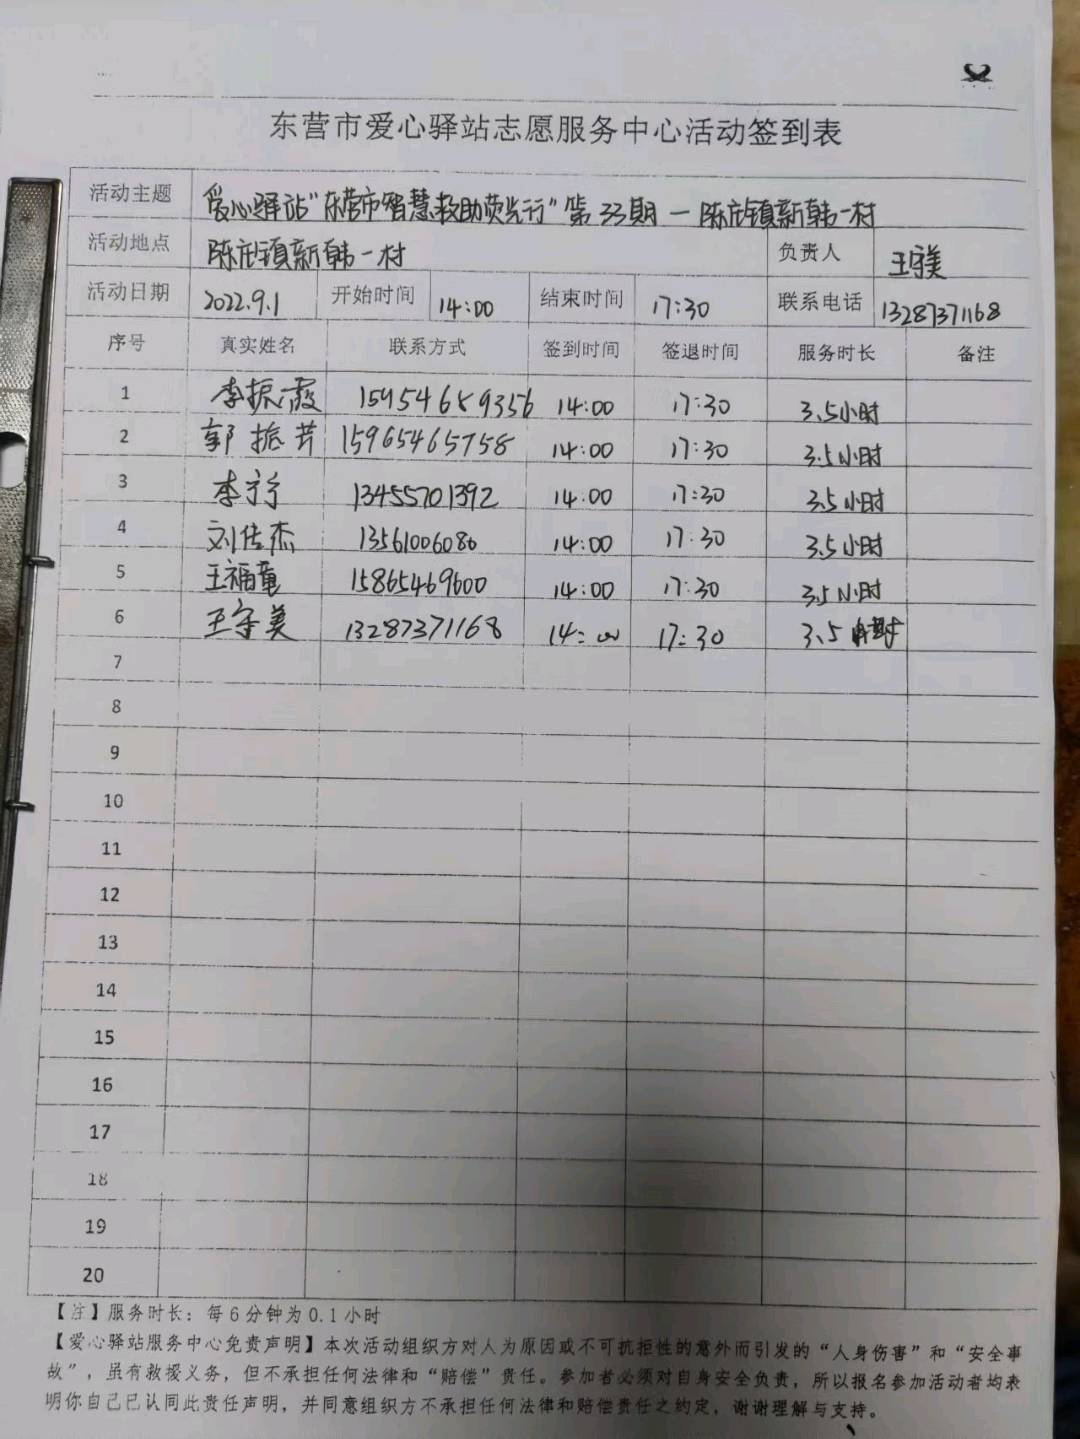 东营市爱心驿站志愿服务中心活动签到表
活动主题 爱心驿站"东营市智慧救助荧光行"第33期—陈庄镇新韩一村
活动地点 陈庄镇新韩一村 负责人 王守美
活动日期 2022.9.1 开始时间 14:00 结束时间 17:30 联系电话 13287371168
序号 真实姓名 联系方式 签到时间 签退时间 服务时长 备注
1 李振霞 15954689356 14:00 17:30 3.5小时
2 郭振芳 15965465758 14:00 17:30 3.5小时
3 李 13455701392 14:00 17:30 3.5小时
4 刘佳杰 13561006086 14:00 17:30 3.5小时
5 王福童 15865469600 14:00 17:30 3.5小时
6 王守美 13287371168 14:00 17:30 3.5
7
8
9
10
11
12
13
14
15
16
17
18
19
20
【注】服务时长：每6分钟为0.1小时
【爱心驿站服务中心免责声明】本次活动组织方对人为原因或不可抗拒性的意外而引发的“人身伤害”和“安全事
故”，虽有救援义务，但不承担任何法律和“赔偿”责任。参加者必须对自身安全负责，所以报名参加活动者均表
明你自己已认同此责任声明，并同意组织方不承担任何法律和赔偿责任之约定，谢谢理解与支持。